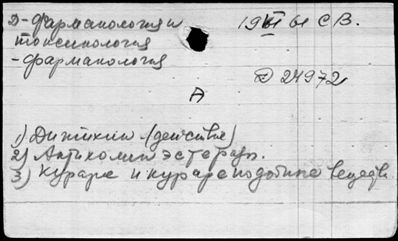 Д-фармакология и
токсикология
-фармакология
19 VI 61 СВ.
Д 24972
А
1) Дитилин (действие)
2) Антихолинэстеразы.
3) Кураре и курареподобные веществ